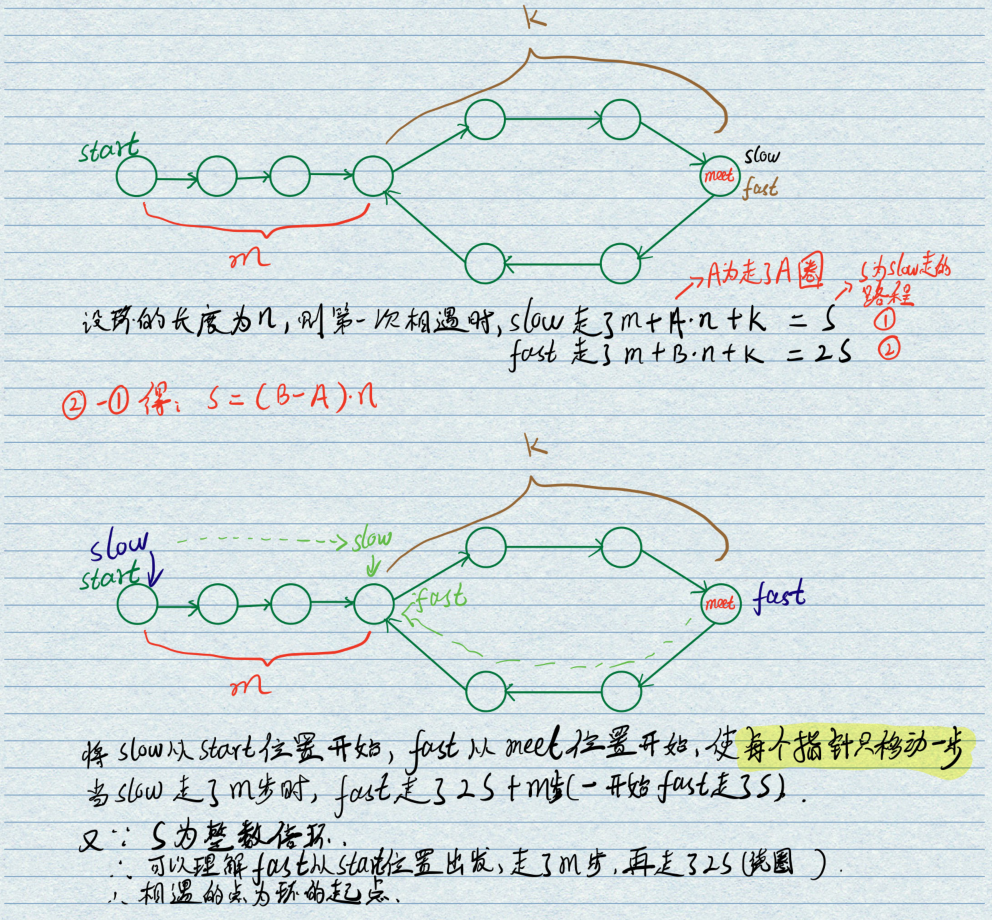 K
start
slow
meet
fast
m
A为走了A圈
S为slow走的
路程
设环的长度为n,则第一次相遇时,slow 走了m+A·n+K = S ①
fast 走了 m+B·n+K = 2S ②
②-①得: S=(B-A)·n
K
slow
slow
start
fast
meet
fast
m
将slow从start位置开始,fast从meet位置开始,使每个指针只移动一步
当slow走了m步时,fast走了2S+m步(一开始fast走了S).
又∵ S为整数倍环.
∴ 可以理解fast从start位置出发,走了m步,再走了2S(绕圈).
∴ 相遇的点为环的起点.